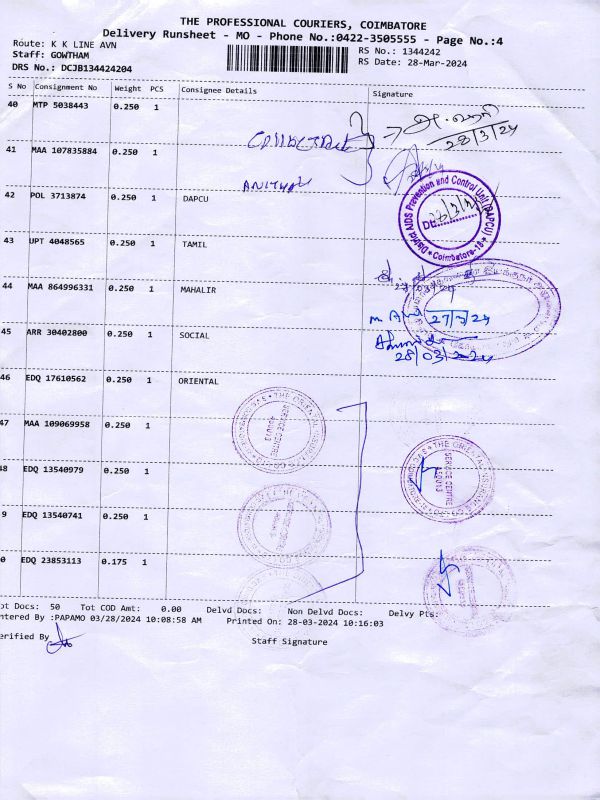 THE PROFESSIONAL COURIERS, COIMBATORE
Delivery Runsheet - MO - Phone No.:0422-3505555 - Page No.:4
Route: K K LINE AVN
RS No.: 1344242
Staff: GOWTHAM
RS Date: 28-Mar-2024
DRS No.: DCJB134424204
S No Consignment No Weight PCS Consignee Details Signature
40 MTP 5038443 0.250 1
28/3/24
41 MAA 107835884 0.250 1
42 POL 3713874 0.250 1 DAPCU
District AIDS Prevention and Control Unit (DAPCU)
Coimbatore-18
43 UPT 4048565 0.250 1 TAMIL
44 MAA 864996331 0.250 1 MAHALIR
27/3/24
45 ARR 30402800 0.250 1 SOCIAL
28/03/2024
46 EDQ 17610562 0.250 1 ORIENTAL
47 MAA 109069958 0.250 1
THE ORIENTAL INSURANCE
SERVICE CENTRE
48 EDQ 13540979 0.250 1
9 EDQ 13540741 0.250 1
0 EDQ 23853113 0.175 1
ot Docs: 50 Tot COD Amt: 0.00 Delvd Docs: Non Delvd Docs: Delvy Pts:
ntered By :PAPAMO 03/28/2024 10:08:58 AM Printed On: 28-03-2024 10:16:03
erified By
Staff Signature